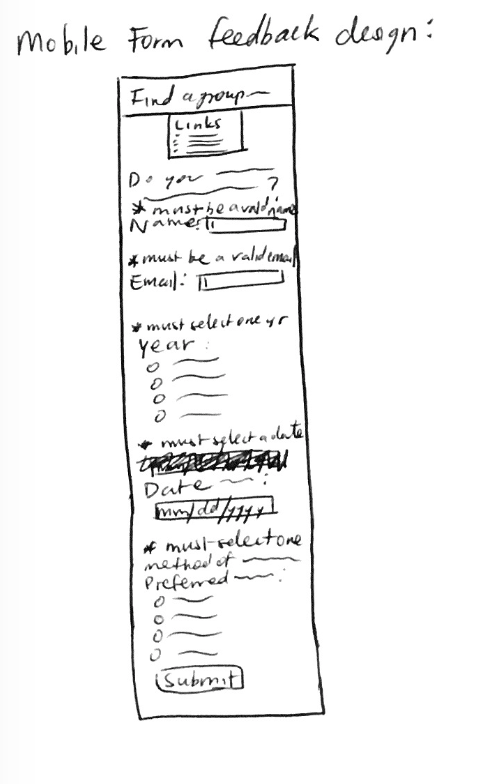 Mobile Form feedback design:
Find a group
Links
Do you ?
* must be a valid name
Name:
* must be a valid email
Email:
* must select one yr
Year:
* must select a date
Date :
mm/dd/yyyy
* must select one
method of
Preferred :
Submit